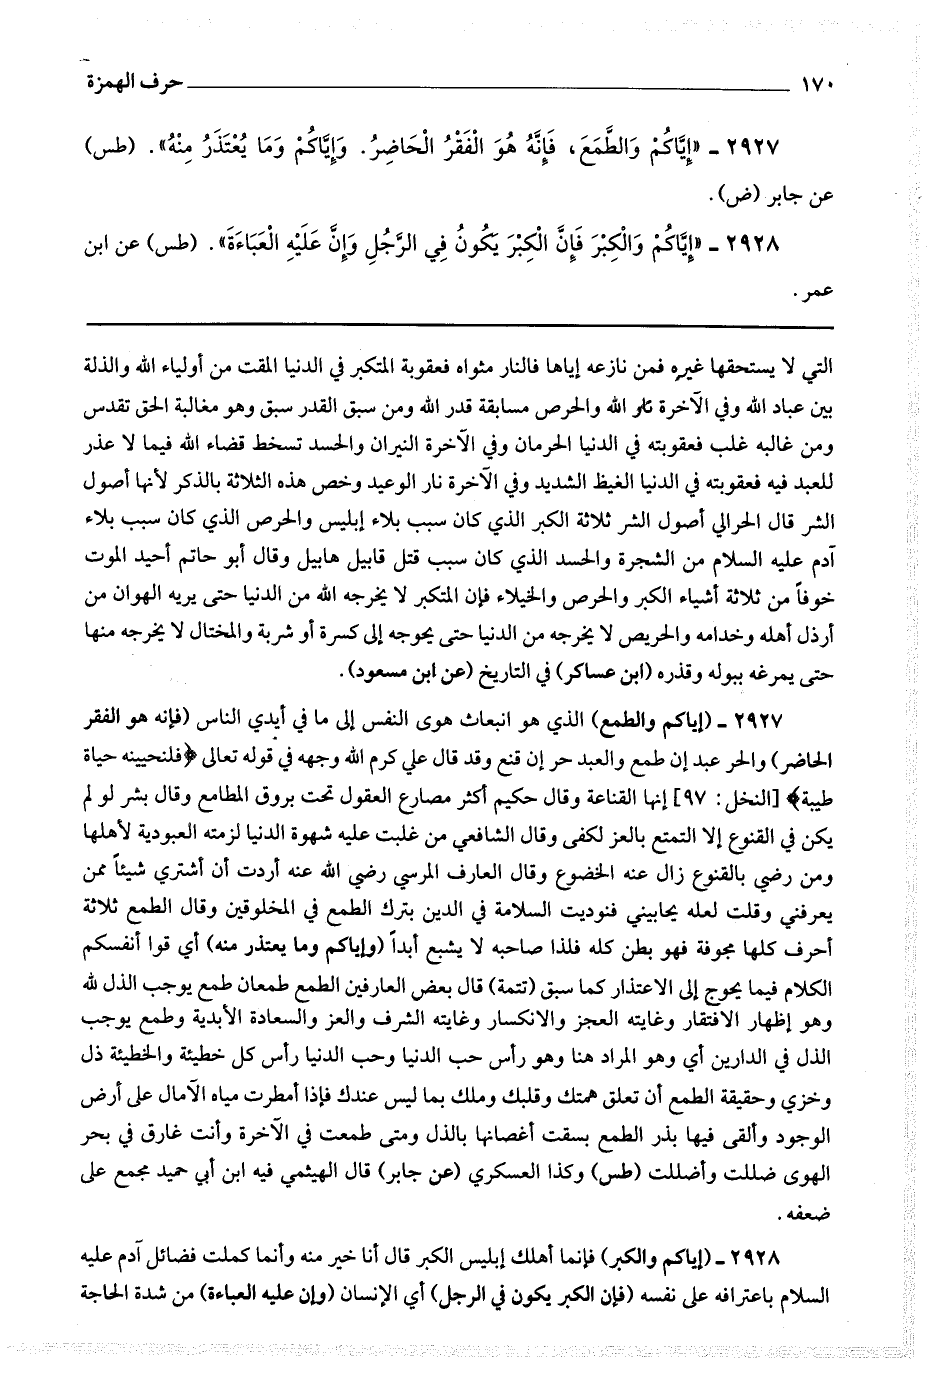 ١٧٠ حرف الهمزة
٢٩٢٧ ـ «إِيَّاكُمْ وَالطَّمَعَ، فَإِنَّهُ هُوَ الْفَقْرُ الْحَاضِرُ. وَإِيَّاكُمْ وَمَا يُعْتَذَرُ مِنْهُ». (طس)
عن جابر (ض).
٢٩٢٨ ـ «إِيَّاكُمْ وَالْكِبْرَ فَإِنَّ الْكِبْرَ يَكُونُ فِي الرَّجُلِ وَإِنَّ عَلَيْهِ الْعَبَاءَةَ». (طس) عن ابن
عمر.
التي لا يستحقها غيره فمن نازعه إياها فالنار مثواه فعقوبة المتكبر في الدنيا المقت من أولياء الله والذلة
بين عباد الله وفي الآخرة نار الله والحرص مسابقة قدر الله ومن سبق القدر سبق وهو مغالبة الحق تقدس
ومن غالبه غلب فعقوبته في الدنيا الحرمان وفي الآخرة النيران والحسد تسخط قضاء الله فيما لا عذر
للعبد فيه فعقوبته في الدنيا الغيظ الشديد وفي الآخرة نار الوعيد وخص هذه الثلاثة بالذكر لأنها أصول
الشر قال الحرالي أصول الشر ثلاثة الكبر الذي كان سبب بلاء إبليس والحرص الذي كان سبب بلاء
آدم عليه السلام من الشجرة والحسد الذي كان سبب قتل قابيل هابيل وقال أبو حاتم أحيد الموت
خوفاً من ثلاثة أشياء الكبر والحرص والخيلاء فإن المتكبر لا يخرجه الله من الدنيا حتى يريه الهوان من
أرذل أهله وخدامه والحريص لا يخرجه من الدنيا حتى يحوجه إلى كسرة أو شربة والمختال لا يخرجه منها
حتى يمرغه ببوله وقذره (ابن عساكر) في التاريخ (عن ابن مسعود).
٢٩٢٧ ـ (إياكم والطمع) الذي هو انبعاث هوى النفس إلى ما في أيدي الناس (فإنه هو الفقر
الحاضر) والحر عبد إن طمع والعبد حر إن قنع وقد قال علي كرم الله وجهه في قوله تعالى ﴿فلنحيينه حياة
طيبة﴾ [النحل: ٩٧] إنها القناعة وقال حكيم أكثر مصارع العقول تحت بروق المطامع وقال بشر لو لم
يكن في القنوع إلا التمتع بالعز لكفى وقال الشافعي من غلبت عليه شهوة الدنيا لزمته العبودية لأهلها
ومن رضي بالقنوع زال عنه الخضوع وقال العارف المرسي رضي الله عنه أردت أن أشتري شيئاً ممن
يعرفني وقلت لعله يحابيني فنوديت السلامة في الدين بترك الطمع في المخلوقين وقال الطمع ثلاثة
أحرف كلها مجوفة فهو بطن كله فلذا صاحبه لا يشبع أبداً (وإياكم وما يعتذر منه) أي قوا أنفسكم
الكلام فيما يحوج إلى الاعتذار كما سبق (تتمة) قال بعض العارفين الطمع طمعان طمع يوجب الذل لله
وهو إظهار الافتقار وغايته العجز والانكسار وغايته الشرف والعز والسعادة الأبدية وطمع يوجب
الذل في الدارين أي وهو المراد هنا وهو رأس حب الدنيا وحب الدنيا رأس كل خطيئة والخطيئة ذل
وخزي وحقيقة الطمع أن تعلق همتك وقلبك وملك بما ليس عندك فإذا أمطرت مياه الآمال على أرض
الوجود وألقى فيها بذر الطمع بسقت أغصانها بالذل ومتى طمعت في الآخرة وأنت غارق في بحر
الهوى ضللت وأضللت (طس) وكذا العسكري (عن جابر) قال الهيثمي فيه ابن أبي حميد مجمع على
ضعفه.
٢٩٢٨ ـ (إياكم والكبر) فإنما أهلك إبليس الكبر قال أنا خير منه وأنما كملت فضائل آدم عليه
السلام باعترافه على نفسه (فإن الكبر يكون في الرجل) أي الإنسان (وإن عليه العباءة) من شدة الحاجة